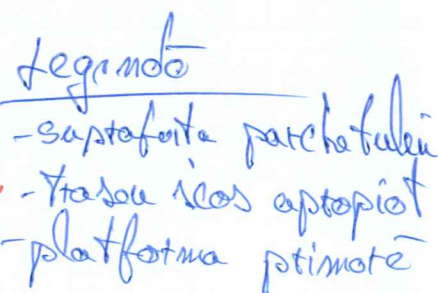 Legendă
- suprafața parchetului
- traseu scos apropiat
- platforma primară